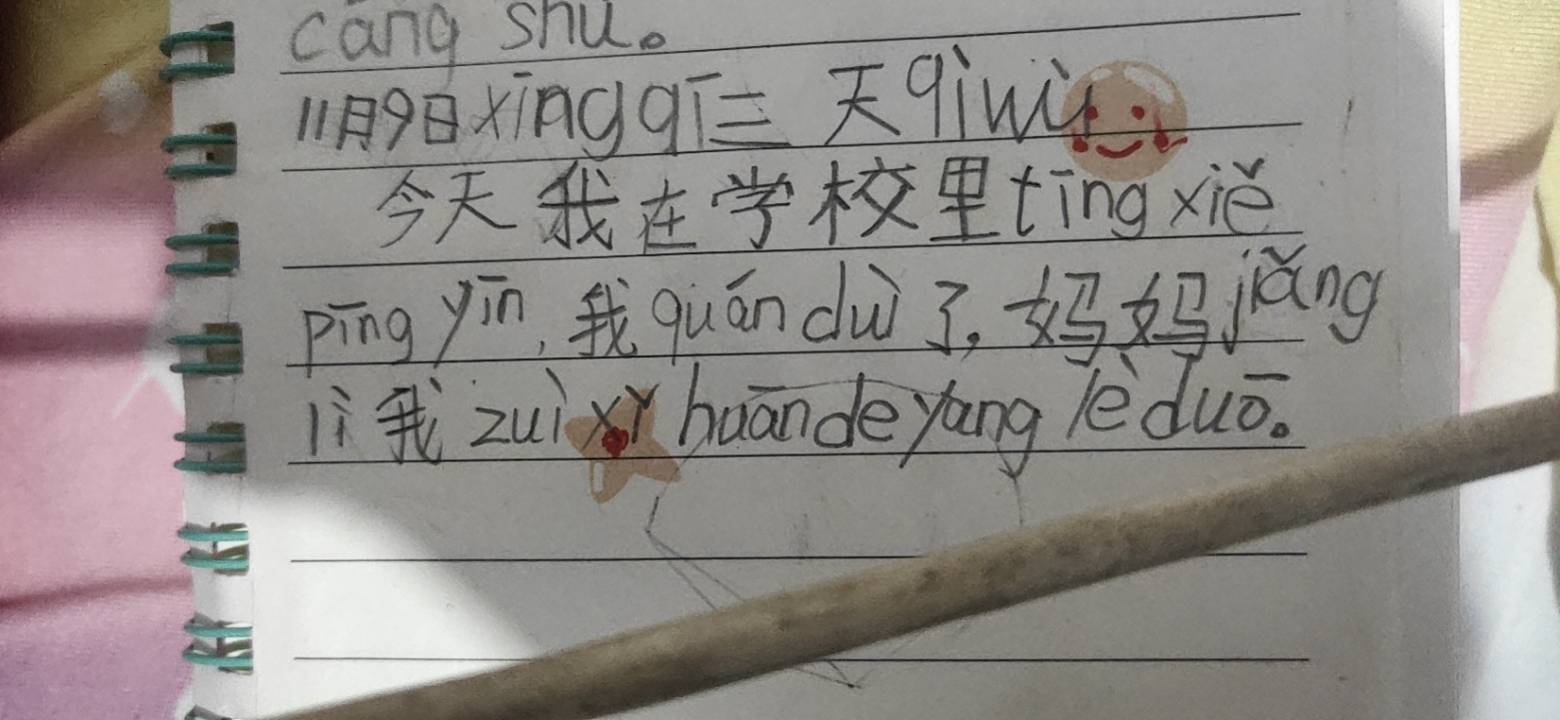 cāng shǔ。
11月9日xīng qī三 天qì wù
今天我在学校里tīng xiě
pīng yīn,我quán duì了,妈妈jiǎng
lì我zuì xǐ huān de yang lè duō。